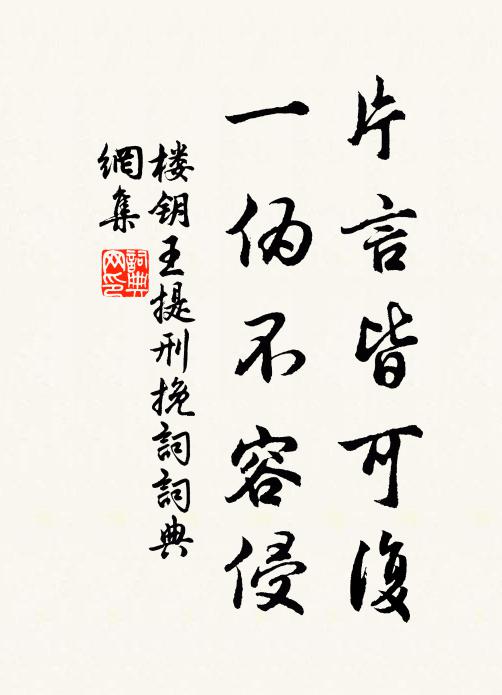 片言皆可復
一伪不容侵
楼钥王提刑挽詞詞典
網集
詞典
网印